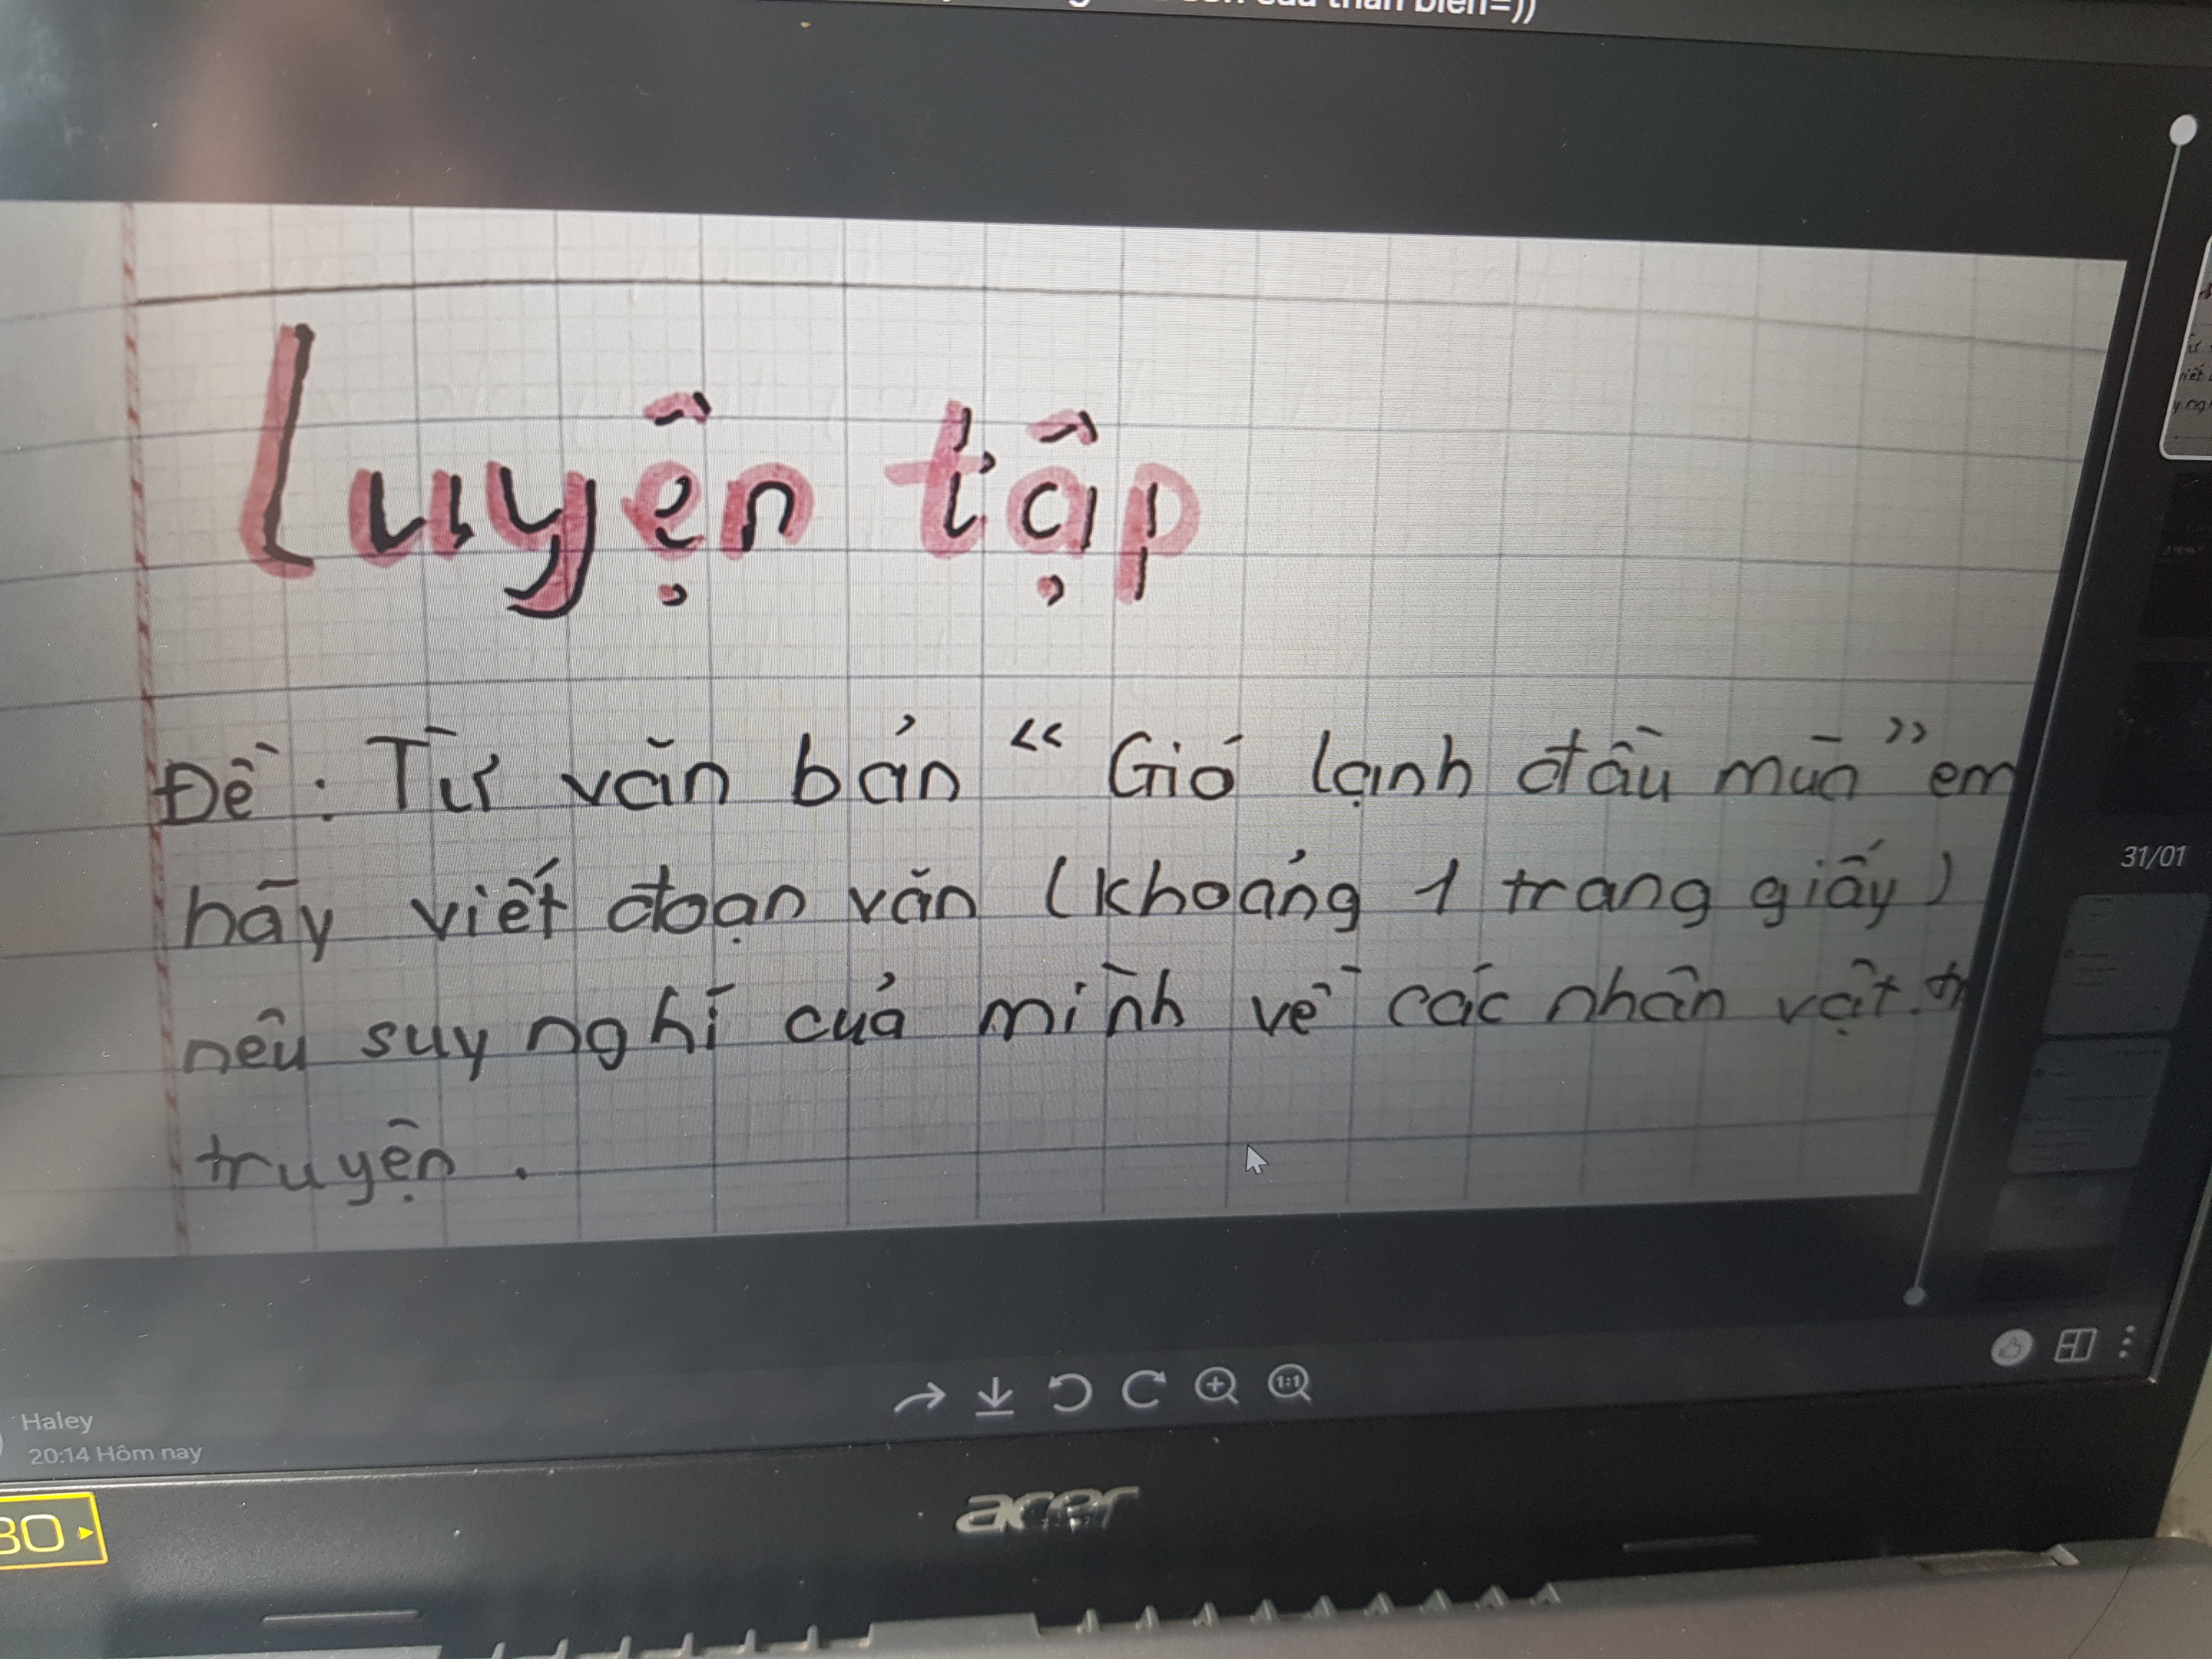 thần biển=))
Luyện tập
Đề: Từ văn bản " Gió lạnh đầu mùa " em
hãy viết đoạn văn (khoảng 1 trang giấy)
nêu suy nghĩ của mình về các nhân vật. tr
truyện.
31/01
1:1
Haley
20:14 Hôm nay
acer